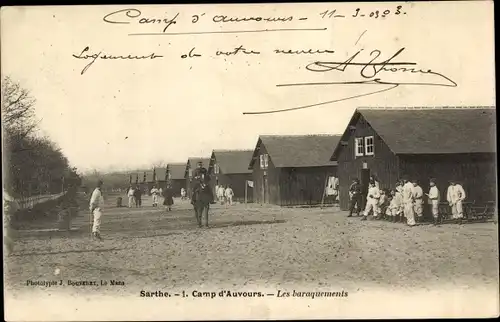 Camp d'Auvours - 11-3-0303
Logement de votre neveu
Phototypie J. BOUVERET, Le Mans
Sarthe. - 1. Camp d'Auvours. - Les baraquements